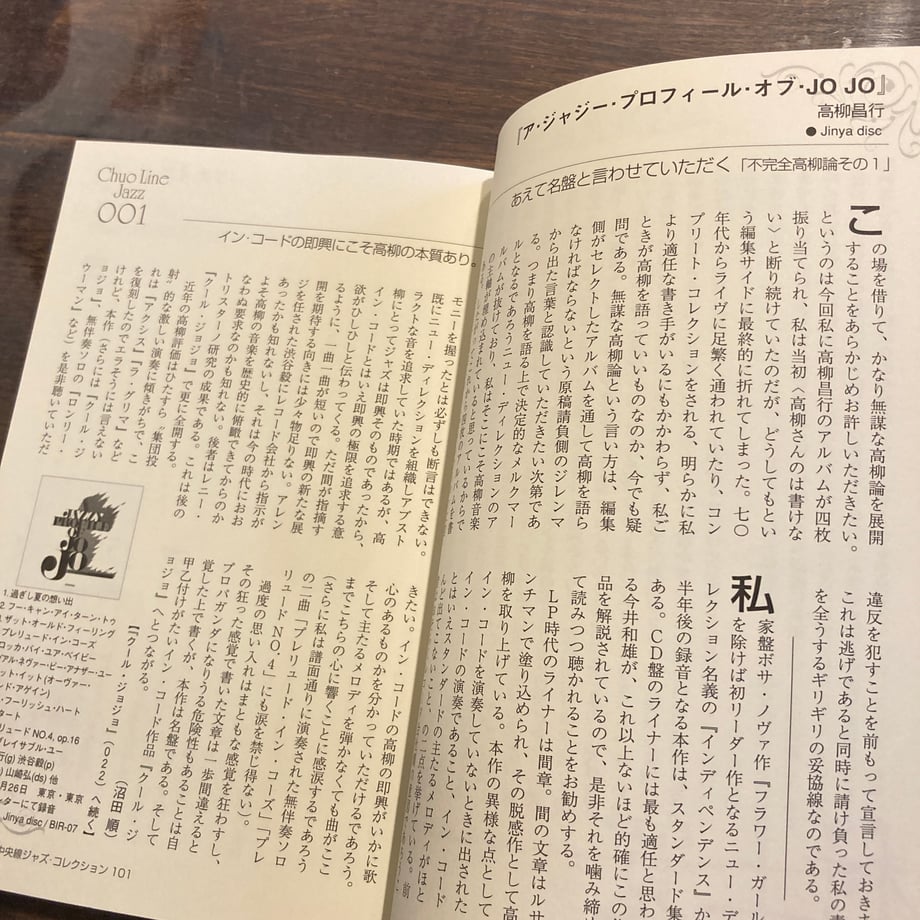 『ア・ジャジー・プロフィール・オブ・JO JO』
高柳昌行
● Jinya disc
あえて名盤と言わせていただく「不完全高柳論その1」
この場を借りて、かなり無謀な高柳論を展開
することをあらかじめお許しいただきたい。
というのは今回私に高柳昌行のアルバムが四枚
振り当てられ、私は当初〈高柳さんのは書けな
い〉と断り続けていたのだが、どうしてもとい
う編集サイドに最終的に折れてしまった。七〇
年代からライヴに足繁く通われていたり、コン
プリート・コレクションをされる、明らかに私
より適任な書き手がいるにもかかわらず、私ご
ときが高柳を語っていいものなのか、今でも疑
問である。無謀な高柳論という言い方は、編集
側がセレクトしたアルバムを通して高柳を語ら
なければならないという原稿請負側のジレンマ
から出た言葉と認識していただきたい次第であ
る。つまり高柳を語る上で決定的なメルクマー
ルとなるであろうニュー・ディレクションのア
ルバムが抜けており、私はそこにこそ高柳音楽
違反を犯すことを前もって宣言しておき
これは逃げであると同時に請け負った私の
を全うするギリギリの妥協線なのである。
私家盤ボサ・ノヴァ作『フラワー・ガール
を除けば初リーダー作となるニュー・デ
レクション名義の『インディペンデンス』か
半年後の録音となる本作は、スタンダード集
ある。CD盤のライナーには最も適任と思わ
る今井和雄が、これ以上ないほど的確にこの
品を解説されているので、是非それを噛み締
て読みつつ聴かれることをお勧めする。
LP時代のライナーは間章。間の文章はルサ
ンチマンで塗り込められ、その脱感作として高
柳を取り上げている。本作の異様な点として
イン・コードを演奏していないときに出された
イン・コードの演奏であること、イン・コード
とはいえスタンダードの主たるメロディがほと
んど出てこないこと、の二点を挙げている。前
Chuo Line
Jazz
001
イン・コードの即興にこそ高柳の本質あり。
モニーを握ったとは必ずしも断言はできない。
既にニュー・ディレクションを組織しアブスト
ラクトな音を追求していた時期ではあるが、高
柳にとってジャズは即興そのものであったから、
イン・コードとはいえ即興の極限を追求する意
欲がひしひしと伝わってくる。ただ間が指摘す
るように、一曲一曲が短いので即興の新たな展
開を期待する向きには少々物足りない。アレン
ジを任された渋谷毅にレコード会社から指示が
あったかも知れないし、それは今の時代におお
よそ高柳の音楽を歴史的に俯瞰できてからのか
なわぬ要求なのかも知れない。後者はレニー・
トリスターノ研究の成果である。これは後の
『クール・ジョジョ』で更に全開する。
近年の高柳評価はひたすら“集団投
射”的な激しい演奏に傾きがちで、こ
れは『アクシス』『ラ・グリマ』など
を復刻したのでエラそうには言えない
けれど、本作（さらには『クール・ジ
ョジョ』、無伴奏ソロの『ロンリー・
ウーマン』など）を是非聴いていただ
きたい。イン・コードの高柳の即興がいかに歌
心のあるものかを分かっていただけるであろう。
そして主たるメロディを弾かなくても曲がここ
までこちらの心に響くことに感涙するであろう
（さらに私は譜面通りに演奏された無伴奏ソロ
の二曲「プレリュード・イン・コーズ」「プレ
リュードNO.4」にも涙を禁じ得ない）。
過度の思い入れはまともな感覚を狂わすし、
その狂った感覚で書いた文章は一歩間違えると
プロパガンダになりうる危険性もあることは自
覚した上で書くが、本作は名盤である。そして
甲乙付けがたいイン・コード作品『クール・ジ
ョジョ』へとつながる。
（沼田 順）
【『クール・ジョジョ』（022）へ続く】
JAZZY
PROFILE
OF
JoJo
1.過ぎし夏の想い出
2.フー・キャン・アイ・ターン・トゥ
ザット・オールド・フィーリング
プレリュード・イン・コーズ
ロッカ・バイ・ユア・ベイビー
アル・ネヴァー・ビー・アナザー・ユー
ット・イット（オーヴァー・
ンド・アゲイン）
・フーリッシュ・ハート
タート
リュード NO.4, op.16
プレイサブル・ユー
行(g) 渋谷毅(p)
) 山崎弘(ds) 他
月26日 東京・東京
ンターにて録音
Jinya disc / BIR-07
中央線ジャズ・コレクション 101